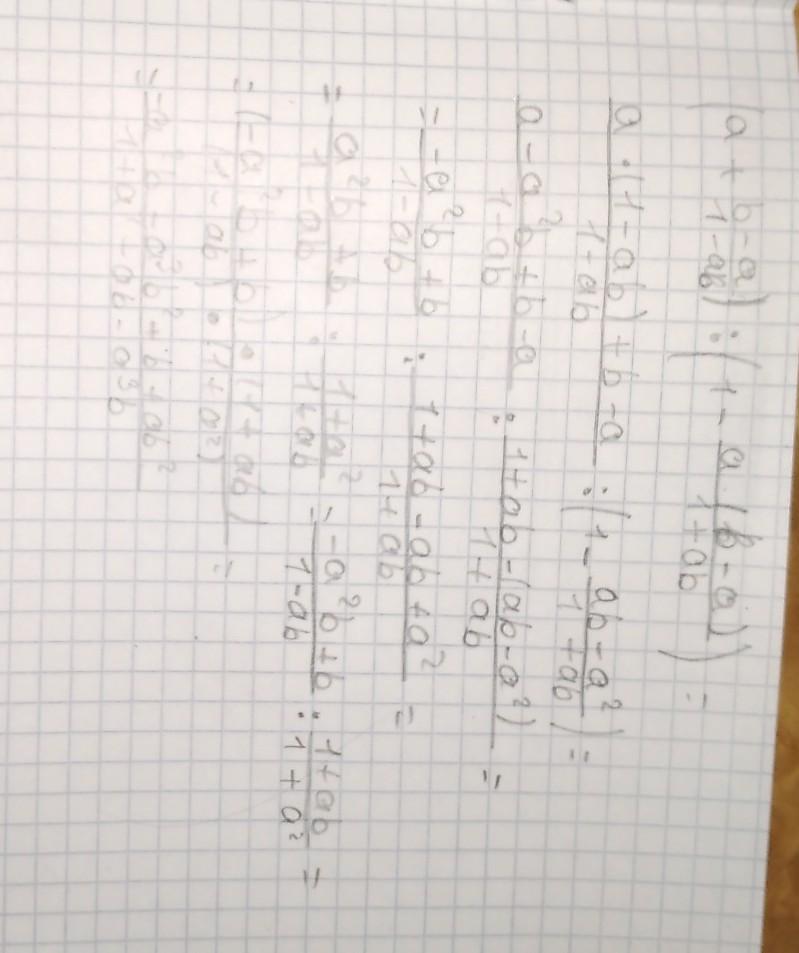 (a + \frac{b-a}{1-ab}) : (1 - \frac{a(b-a)}{1+ab}) =
\frac{a·(1-ab)+b-a}{1-ab} : (1 - \frac{ab-a²}{1+ab}) =
\frac{a-a²b+b-a}{1-ab} : \frac{1+ab-(ab-a²)}{1+ab} =
= \frac{-a²b+b}{1-ab} : \frac{1+ab-ab+a²}{1+ab} =
= \frac{a²b+b}{1-ab} : \frac{1+a²}{1+ab} = \frac{-a²b+b}{1-ab} : \frac{1+ab}{1+a²} =
= \frac{(-a²b+b)·(1+ab)}{(1-ab)·(1+a²)} =
= \frac{-a²b-a³b²+b+ab²}{1+a²-ab-a³b}